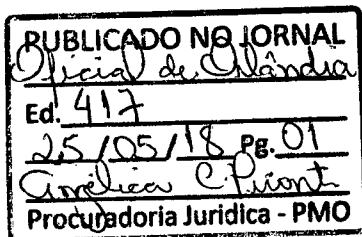 PUBLICADO NO JORNAL
Oficial de Orlândia
Ed. 417
25/05/18 Pg. 01
Amélica C.
Procuradoria Juridica - PMO